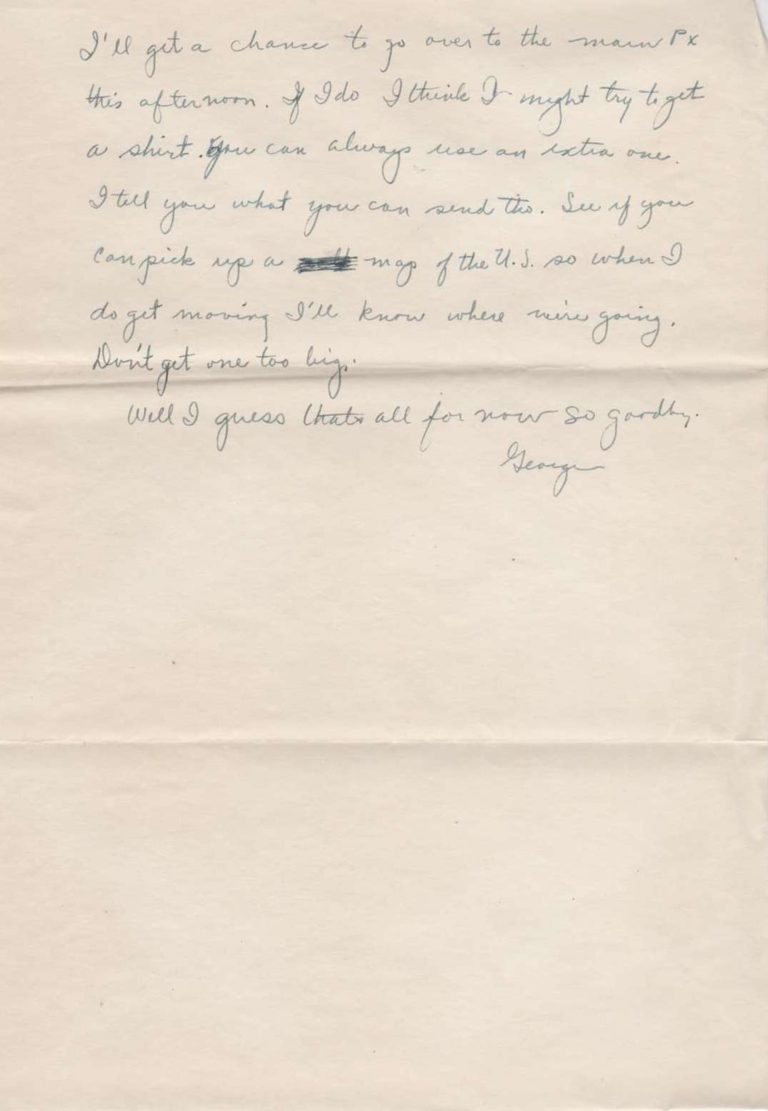 I'll get a chance to go over to the main Px
this afternoon. If I do I think I might try to get
a shirt. You can always use an extra one.
I tell you what you can send tho. See if you
can pick up a map of the U.S. so when I
do get moving I'll know where we're going.
Don't get one too big.
Well I guess thats all for now so goodby.
George